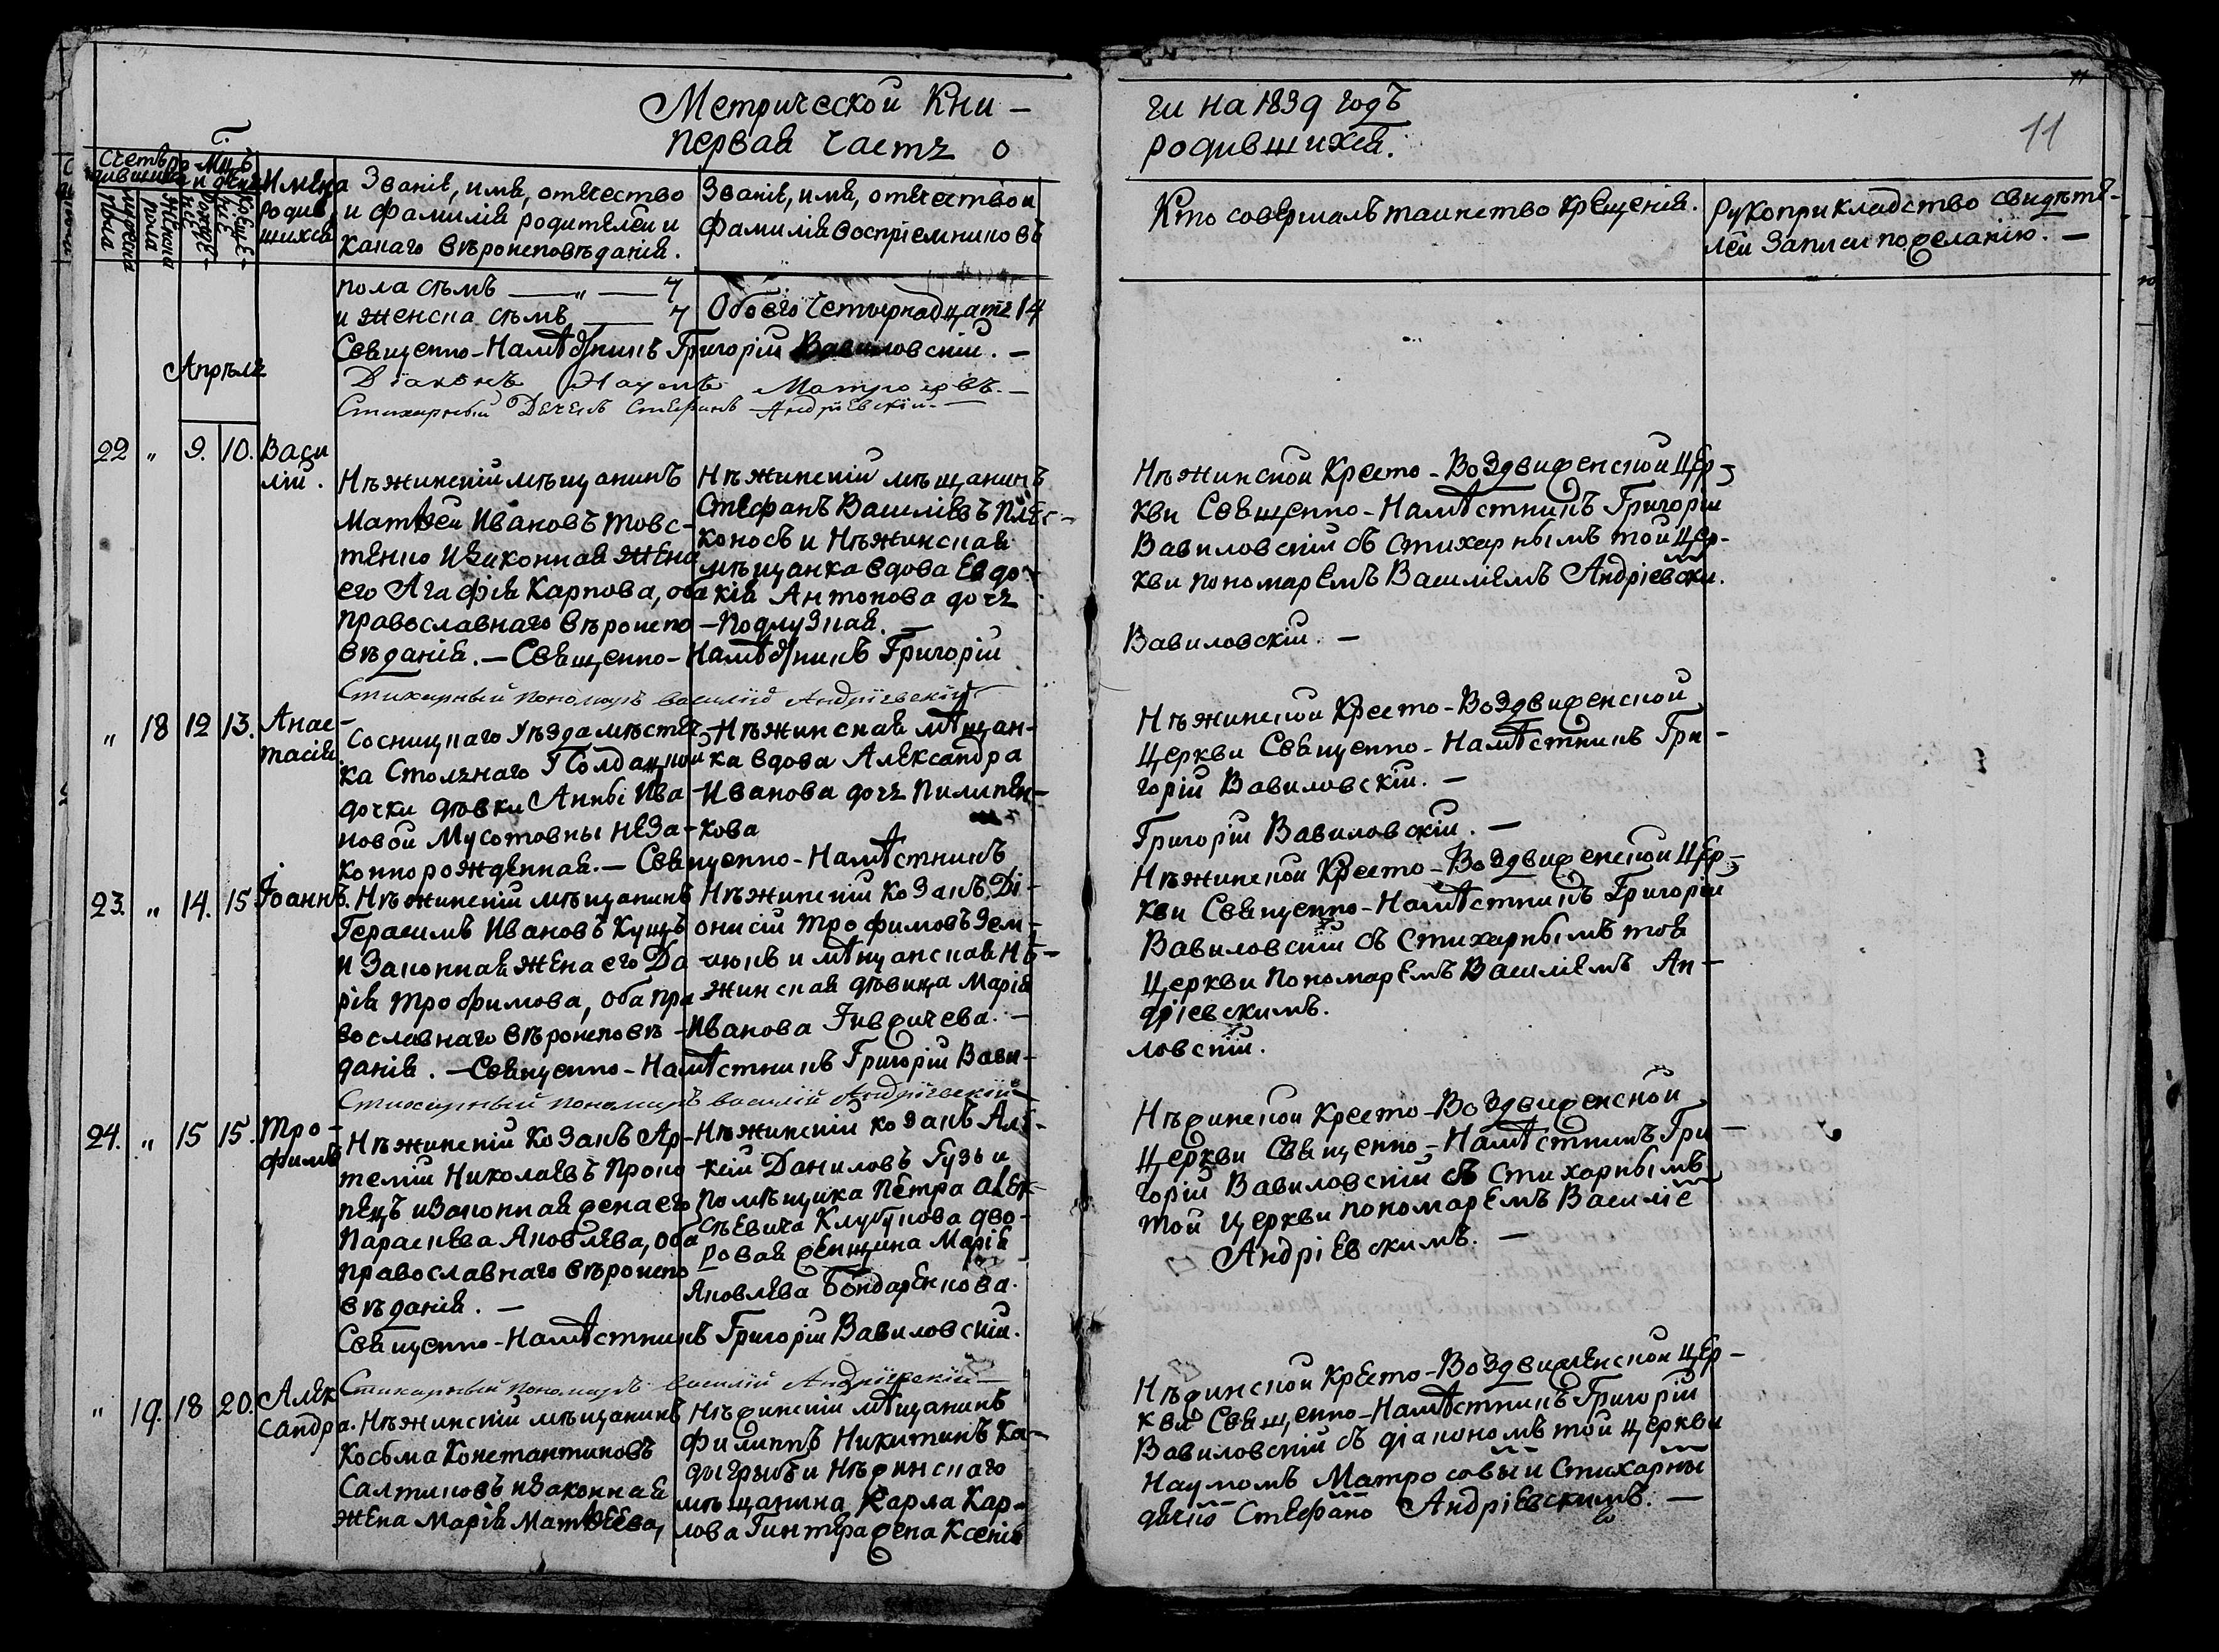 Метрической Кни –
Первая Часть о
ги на 1839 годъ
родившихся.
11
11
Счетъ ро-
дившихся
Мужеска
пола
Женска
пола
Мц҃ъ
и день
Рожде-
нія
Креще-
нія
Имена
родив
шихся
Званіе, имя, отчество
и фамилія родителей и
какаго вѣроисповѣданія.
Званіе, имя, отчество и
фамилія воспріемниковъ
Кто совершалъ таинство крещенія.
Рукоприкладство свидѣте-
лей записи по желанію. —
пола сѣмъ — „ — 7
и женска сѣмъ — 7 Обоего Четырнадцать 14
Священно-Намѣстникъ Григорій Вавиловскій. —
Діаконъ Наумъ Матросовъ. —
Стихарный Дечекъ Стефанъ Андріевскій. —
Апрѣль
22 „ 9. 10. Васи
лій.
Нѣжинскій мѣщанинъ
Матвей Ивановъ Товс-
тенко и законная жена
его Агафія Карпова, оба
православнаго вѣроиспо
вѣданія. — Священно-Намѣстникъ Григорій
Нѣжинскій мѣщанинъ
Стефанъ Василіевъ
коносъ и Нѣжинская
мѣщанка вдова Евдо-
кія Антонова дочь
— Подлузная.
Нѣжинской Кресто-Воздвиженской Цер-
кви Священно-Намѣстникъ Григорій
Вавиловскій съ Стихарнымъ той Цер-
кви пономаремъ Василіемъ Андріевски.
Вавиловскій. —
Стихарный пономарь Василій Андріевскій
„ 18 12 13. Анас-
тасія
Сосницкаго уѣзда мѣстеч-
ка Столнаго Солдацкой
дочки дѣвки Анны Ива-
новой Мусотовны неза-
коннорожденная. — Священно-Намѣстникъ
Нѣжинская мѣщан-
ка вдова Александра
Иванова дочь Пилипен-
кова
Нѣжинской Кресто-Воздвиженской
Церкви Священно-Намѣстникъ Гри-
горій Вавиловскій. —
Григорій Вавиловскій. —
23. „ 14. 15 Іоаннъ.
Нѣжинскій мѣщанинъ
Герасимъ Ивановъ Куцъ
и законная жена его Да
рія Трофимова, оба пра
вославнаго вѣроисповѣ-
данія. — Священно-Намѣстникъ Григорій Вави-
Нѣжинскій Козакъ Ді-
онисій Трофимовъ Зем-
люкъ и мѣщанская Нѣ-
жинская дѣвица Марія
Иванова
Нѣжинской Кресто-Воздвиженской Цер-
кви Священно-Намѣстникъ Григорій
Вавиловскій съ Стихарнымъ тоя
Церкви Пономаремъ Василіемъ Ан-
дріевскимъ.
ловскій.
Стихарный пономарь Василій Андріевскій
24. „ 15 15. Тро-
фимъ
Нѣжинскій Козакъ Ар-
темій Николаевъ Проко
пецъ и законная жена его
Параскева Яковлева, оба
православнаго вѣроиспо
вѣданія. —
Священно-Намѣстникъ Григорій Вавиловскій.
Нѣжинскій козакъ Але-
кѣй Даниловъ Гузь и
помѣщика Петра Алек-
сѣевича Клубукова дво-
ровая женщина Марія
Яковлева Бондаренкова.
Нѣжинской Кресто-Воздвиженской
Церкви Священно-Намѣстникъ Гри-
горій Вавиловскій съ Стихарнымъ
той Церкви пономаремъ Василіе
Андріевскимъ. —
Стихарный пономарь Василій Андріевскій —
„ 19. 18 20. Алек
сандра.
Нѣжинскій мѣщанинъ
Косьма Константиновъ
Салтиковъ и законная
жена Марія Матвеева,
Нѣжинскій мѣщанинъ
Филиппъ Никитинъ Ка-
дигрыбъ и Нѣжинскаго
мѣщанина Карла Кар-
лова Гинтера жена Ксенія
Нѣжинской Кресто-Воздвиженской Цер-
кви Священно-Намѣстникъ Григорій
Вавиловскій съ діакономъ той Церкви
Наумомъ Матросовы и Стихарны
дячко Стефано Андріевскимъ. —